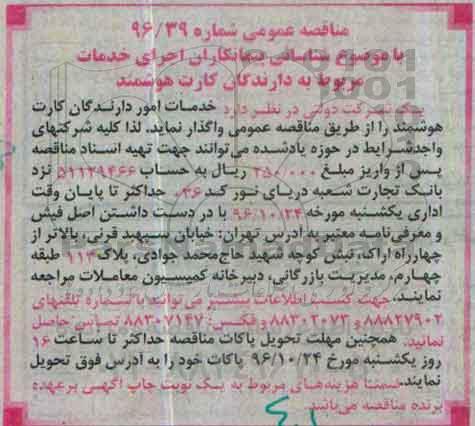 مناقصه عمومی شماره ۹۶/۳۹
با موضوع شناسائی پیمانکاران اجرای خدمات
مربوط به دارندگان کارت هوشمند
یک شرکت دولتی در نظر دارد خدمات امور دارندگان کارت
هوشمند را از طریق مناقصه عمومی واگذار نماید. لذا کلیه شرکتهای
واجدشرایط در حوزه یادشده می‌توانند جهت تهیه اسناد مناقصه
پس از واریز مبلغ ۲۵۰/۰۰۰ ریال به حساب ۵۱۱۲۹۴۶۶ نزد
بانک تجارت شعبه دریای نور کد ۰۳۶ حداکثر تا پایان وقت
اداری یکشنبه مورخه ۹۶/۱۰/۲۴ با در دست داشتن اصل فیش
و معرفی‌نامه معتبر به آدرس تهران: خیابان سپهبد قرنی، بالاتر از
چهارراه اراک، نبش کوچه شهید حاج‌محمد جوادی، پلاک ۱۱۳ طبقه
چهارم، مدیریت بازرگانی، دبیرخانه کمیسیون معاملات مراجعه
نمایند. جهت کسب اطلاعات بیشتر می‌توانید با شماره تلفنهای
۸۸۸۲۷۹۰۲ و ۸۸۳۰۲۰۷۳ و فکس: ۸۸۳۰۷۱۴۷ تماس حاصل
نمائید. همچنین مهلت تحویل پاکات مناقصه حداکثر تا ساعت ۱۶
روز یکشنبه مورخ ۹۶/۱۰/۲۴ پاکات خود را به آدرس فوق تحویل
نمایند. ضمناً هزینه‌های مربوط به یک نوبت چاپ آگهی برعهده
برنده مناقصه می‌باشد.